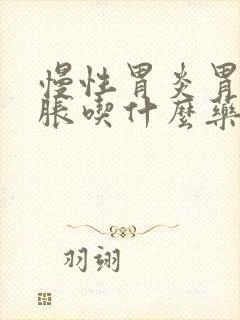 慢性胃炎胃
脹喫什麼藥
羽翊